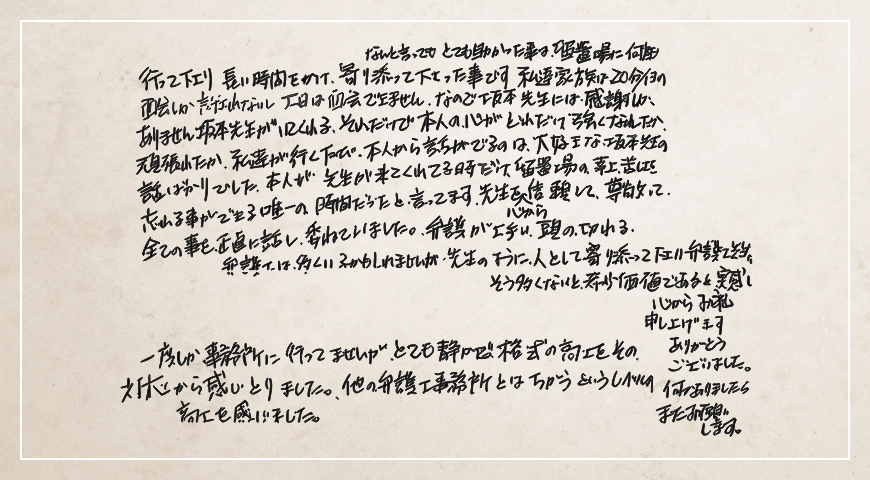 なんと言っても とても助かった事は、留置場に何度
行って下さり 長い時間をかけて、寄り添って下さった事です 私達家族は20分/1日の
面会しか許されないし 土日は面会できません。なので坂本先生には、感謝しか、
ありません。坂本先生が来てくれる、それだけで 本人の、心がどれだけ強くなれたか、
頑張れたか、私達が行くたび、本人から話がでるのは、大好きな坂本先生の
話ばかりでした。本人が 先生が来てくれてる時だけ、留置場の、辛い
忘れる事ができる唯一の 時間だったと、言ってます。先生を心から信頼して、尊敬して、
全ての事を正直に話し、委ねていました。弁護が上手い、頭の、切れる、
弁護士は、多くいるかもしれませんが、先生のように、人として寄り添って下さい弁護士先生
そう多くないと、希少価値であると 実感し
心からお礼
申し上げます
ありがとう
ございました。
何かありましたら
またお願い
します。
一度しか事務所に行ってませんが、とても静かで格式の高さをその、
対応から感じとりました。他の弁護士事務所とはちがうというレベルの
高さを感じました。